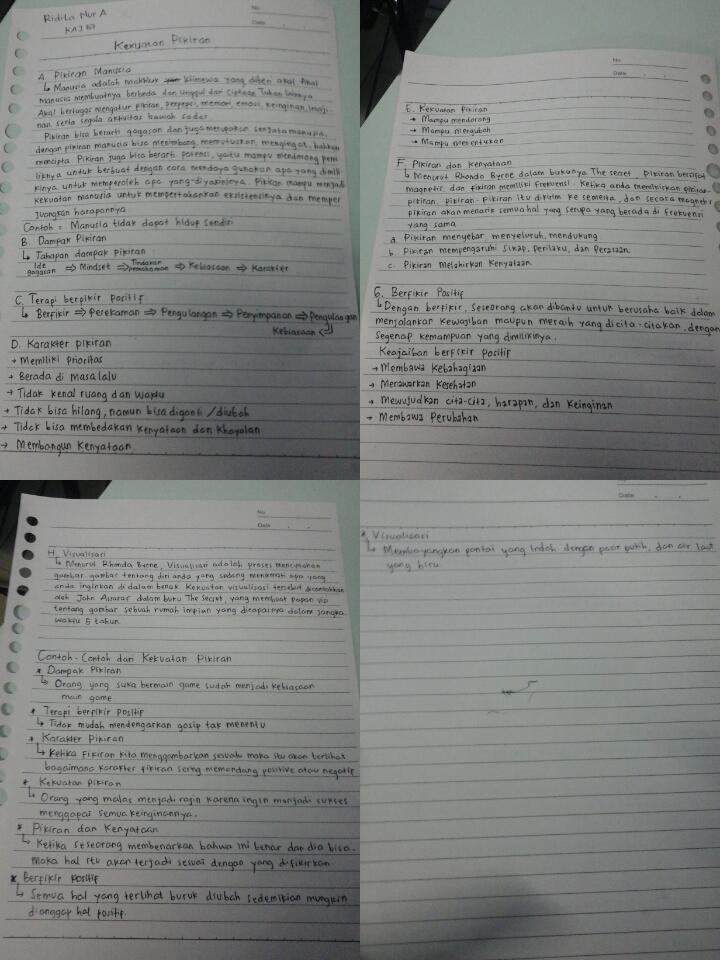 Ridita Nur A
No
Date
Kekuatan Pikiran
A. Pikiran Manusia
↳ Manusia adalah makhluk istimewa yang diberi akal. Akal
manusia membuatnya berbeda dan unggul dari ciptaan Tuhan lainnya.
Akal bertugas mengatur pikiran, persepsi, memori, emosi, keinginan, imaji-
nasi serta segala aktivitas bawah sadar.
Pikiran bisa berarti gagasan dan juga merupakan senjata manusia,
dengan pikiran manusia bisa menimbang, memutuskan, mengingat, bahkan
mencipta. Pikiran juga bisa berarti potensi, yaitu mampu mendorong pemi
liknya untuk berbuat dengan cara mendaya gunakan apa yang dimili
kinya untuk memperoleh apa yang diyakininya. Pikiran mampu menjadi
kekuatan manusia untuk mempertahankan eksistensinya dan memper
juangkan harapannya.
Contoh = Manusia tidak dapat hidup sendiri
B. Dampak Pikiran
↳ Tahapan dampak pikiran :
Ide gagasan ⇒ Mindset ⇒ Tindakan ⇒ Kebiasaan ⇒ Karakter
C. Terapi berpikir positif
↳ Berfikir ⇒ Perekaman ⇒ Pengulangan ⇒ Penyimpanan ⇒ Pengulangan
Kebiasaan
D. Karakter pikiran
→ Memiliki prioritas
→ Berada di masa lalu
→ Tidak kenal ruang dan waktu
→ Tidak bisa hilang, namun bisa diganti / diubah
→ Tidak bisa membedakan kenyataan dan khayalan
→ Membangun kenyataan
No
Date
E. Kekuatan Pikiran
→ Mampu mendorong
→ Mampu mengubah
→ Mampu menentukan
F. Pikiran dan Kenyataan
↳ Menurut Rhonda Byrne dalam bukunya The secret, Pikiran bersifat
magnetis, dan fikiran memiliki frekuensi. Ketika anda memikirkan pikiran-
pikiran, pikiran-pikiran itu dikirim ke semesta, dan secara magnetis
pikiran akan menarik semua hal yang serupa yang berada di frekuensi
yang sama
a. Pikiran menyebar, menyeluruh, mendukung
b. Pikiran mempengaruhi sikap, perilaku, dan perasaan.
c. Pikiran melahirkan kenyataan.
G. Berfikir Positif
↳ Dengan berfikir, seseorang akan dibantu untuk berusaha baik dalam
menjalankan kewajiban maupun meraih yang dicita-citakan, dengan
segenap kemampuan yang dimilikinya.
Keajaiban berfikir positif
→ Membawa kebahagiaan
→ Menawarkan kesehatan
→ Mewujudkan cita-cita, harapan, dan keinginan
→ Membawa perubahan
No
Date
H. Visualisasi
↳ Menurut Rhonda Byrne, Visualisasi adalah proses menciptakan
gambar-gambar tentang diri anda yang sedang menikmati apa yang
anda inginkan di dalam benak. Kekuatan visualisasi tersebut dicontohkan
oleh John Assaraf dalam buku The Secret, yang membuat papan visi
tentang gambar sebuah rumah impian yang dicapainya dalam jangka
waktu 5 tahun.
Contoh-Contoh dari Kekuatan Pikiran
* Dampak Pikiran
↳ Orang yang suka bermain game sudah menjadi kebiasaan
main game
* Terapi berfikir positif
↳ Tidak mudah mendengarkan gosip tak menentu
* Karakter Pikiran
↳ Ketika fikiran kita menggambarkan sesuatu maka itu akan terlihat
bagaimana karakter fikiran sering memandang positive atau negatif
* Kekuatan Pikiran
↳ Orang yang malas menjadi rajin karena ingin menjadi sukses
menggapai semua keinginannya.
* Pikiran dan Kenyataan
↳ Ketika seseorang membenarkan bahwa ini benar dan dia bisa.
Maka hal itu akan terjadi sesuai dengan yang difikirkan.
* Berfikir Positif
↳ Semua hal yang terlihat buruk diubah sedemikian mungkin
dianggap hal positif.
Date
* Visualisasi
↳ Membayangkan pantai yang indah dengan pasir putih, dan air laut
yang biru